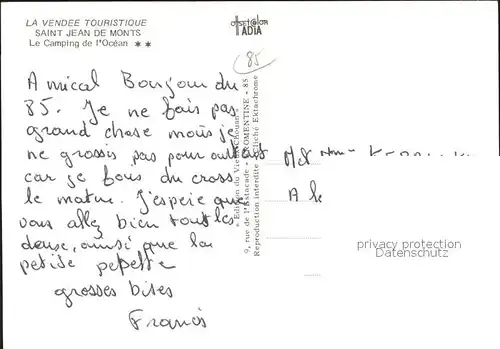 LA VENDEE TOURISTIQUE
SAINT JEAN DE MONTS
Le Camping de l'Océan ★★
offset color
ADIA
85
Amical Bonjour du
85. Je ne fais pas
grand chose mais je
ne grossis pas pour autant
car je fais du cross
le matin. J'espère que
vous allez bien toutes
deux, ainsi que la
petite pepette
grosses bises
Francis
Edition du Vieux Chouan
9, rue de l'Estacade - FROMENTINE - 85
Reproduction interdite - Cliché Ektachrome
M et Mme
A le
privacy protection
Datenschutz